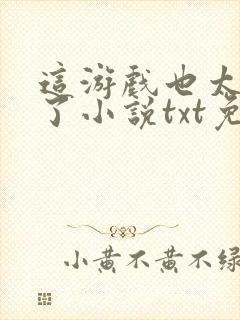 這游戲也太
了小説txt免
小黃不黃不綠